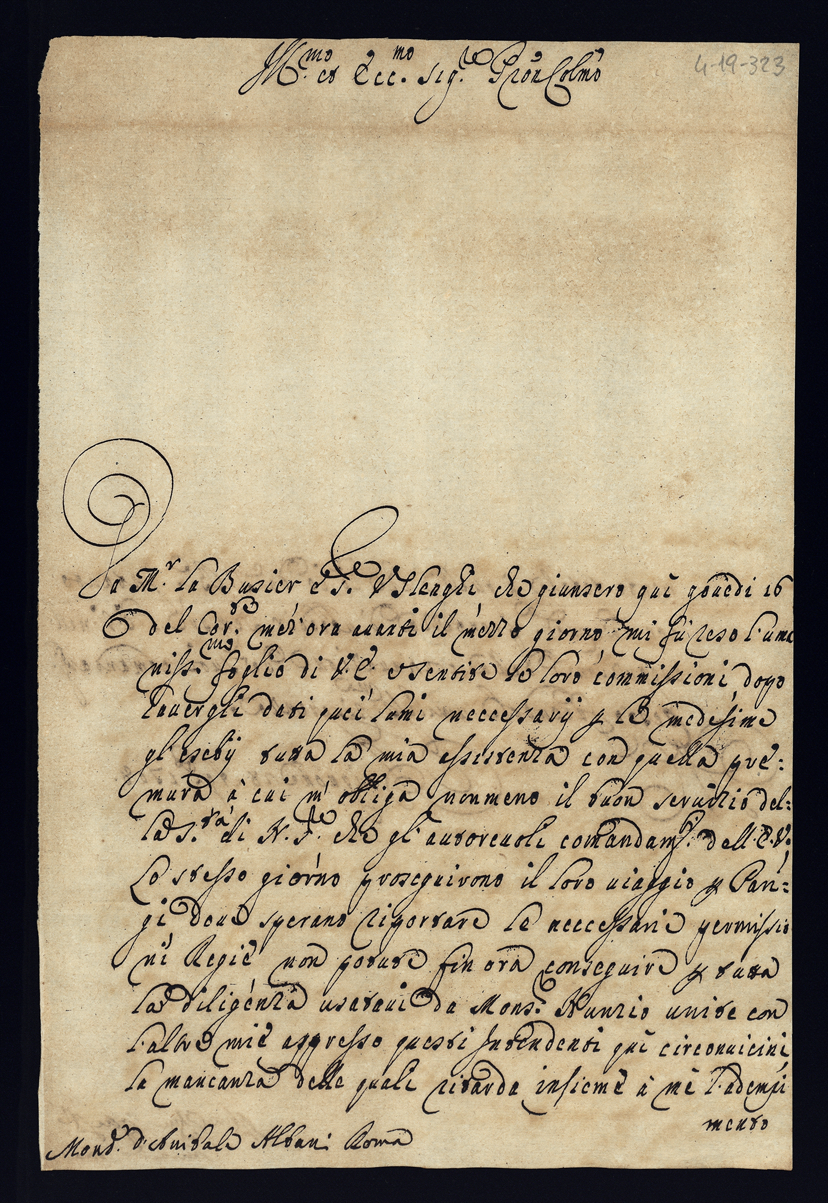 Ill.mo et Ecc.mo Sig.re Pron Colmo
4-19-323
Da M.r la Busier e S.r che giunsero qui giovedi 16
del Cor.te mez' ora avanti il mezzo giorno mi fù reso l'uma
niss.mo foglio di V.E. e sentite le loro commissioni dopo
havergli dati quei lumi neccessarij p le medesime
gl'esebij tutta la mia assistenza con quella pre=
mura à cui m'obbliga nonmeno il buon servitio del=
la S.tà di N. S.re che gl'autorevoli comandam.ti dell'E.V.
Lo stesso giorno proseguirono il loro viaggio p Pari=
gi dove sperano riportare le neccessarie permissio
ni Regie non potute fin ora conseguire p tutta
la diligenza usatavi da Mons.r Nunzio unite con
l'altre mie appresso questi Intendenti quì circonvicini,
la mancanza delle quali ritarda insieme à me l'adempi
mento
Mons.r Annibale Albani Roma